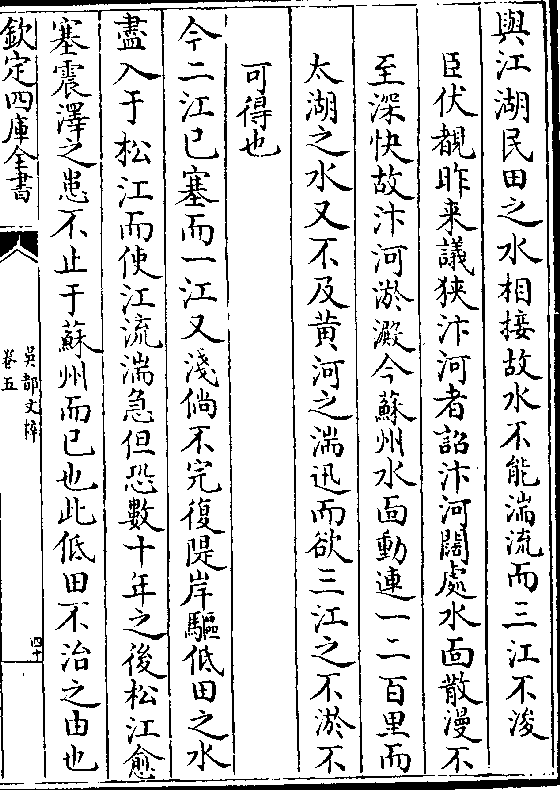 與江湖民田之水相接故水不能湍流而三江不浚
臣伏覩昨来議狹汴河者詔汴河闊處水面散漫不
至深快故汴河淤澱今蘇州水面動連一二百里而
太湖之水又不及黄河之湍迅而欲三江之不淤不
可得也
今二江已塞而一江又淺倘不完復隄岸驅低田之水
盡入于松江而使江流湍急但恐數十年之後松江愈
塞震澤之患不止于蘇州而已也此低田不治之由也
欽定四庫全書
吳都文粹
卷五
四十